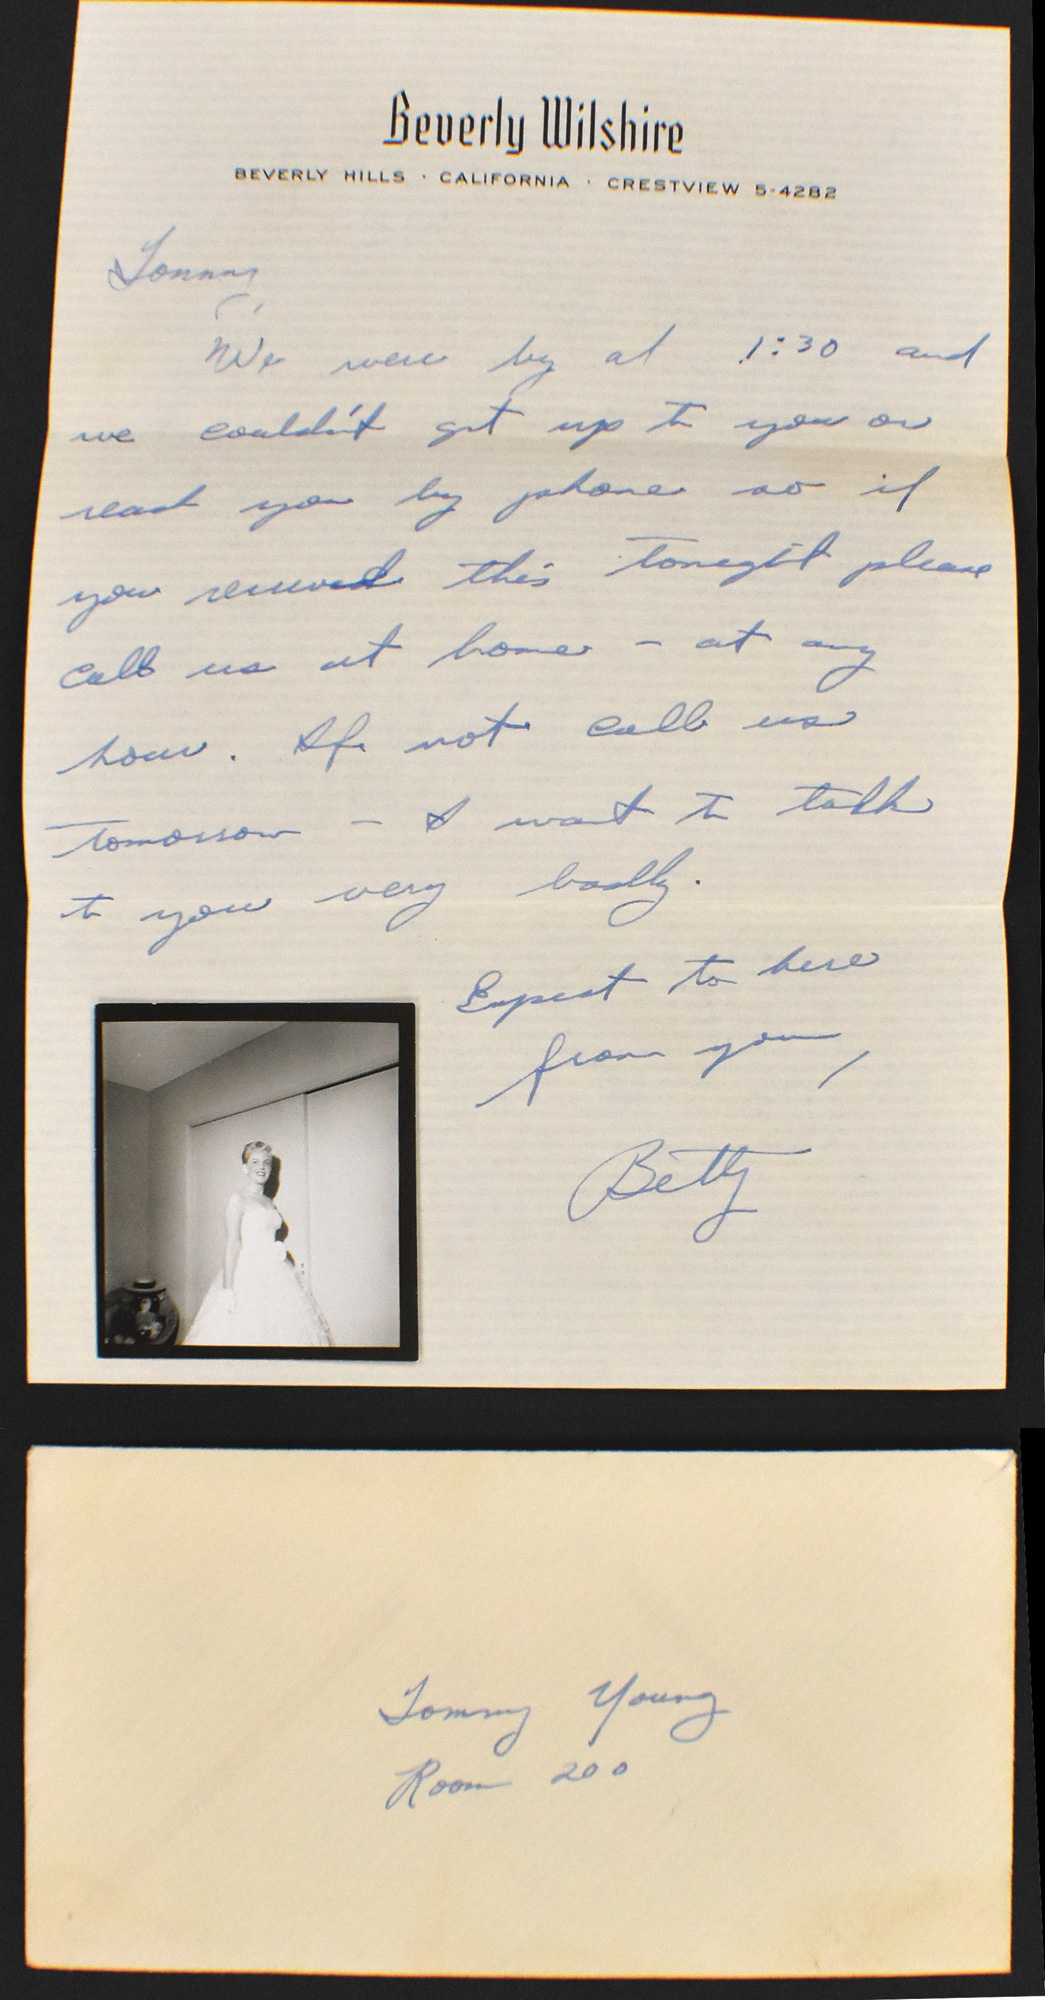 Beverly Wilshire
BEVERLY HILLS · CALIFORNIA · CRESTVIEW 5-4282
Tommy,
We were by at 1:30 and
we couldn't get up to you or
reach you by phone so if
you received this tonight please
call us at home - at any
hour. If not call us
tomorrow - I want to talk
to you very badly.
Expect to here
from you,
Betty
Tommy Young
Room 200